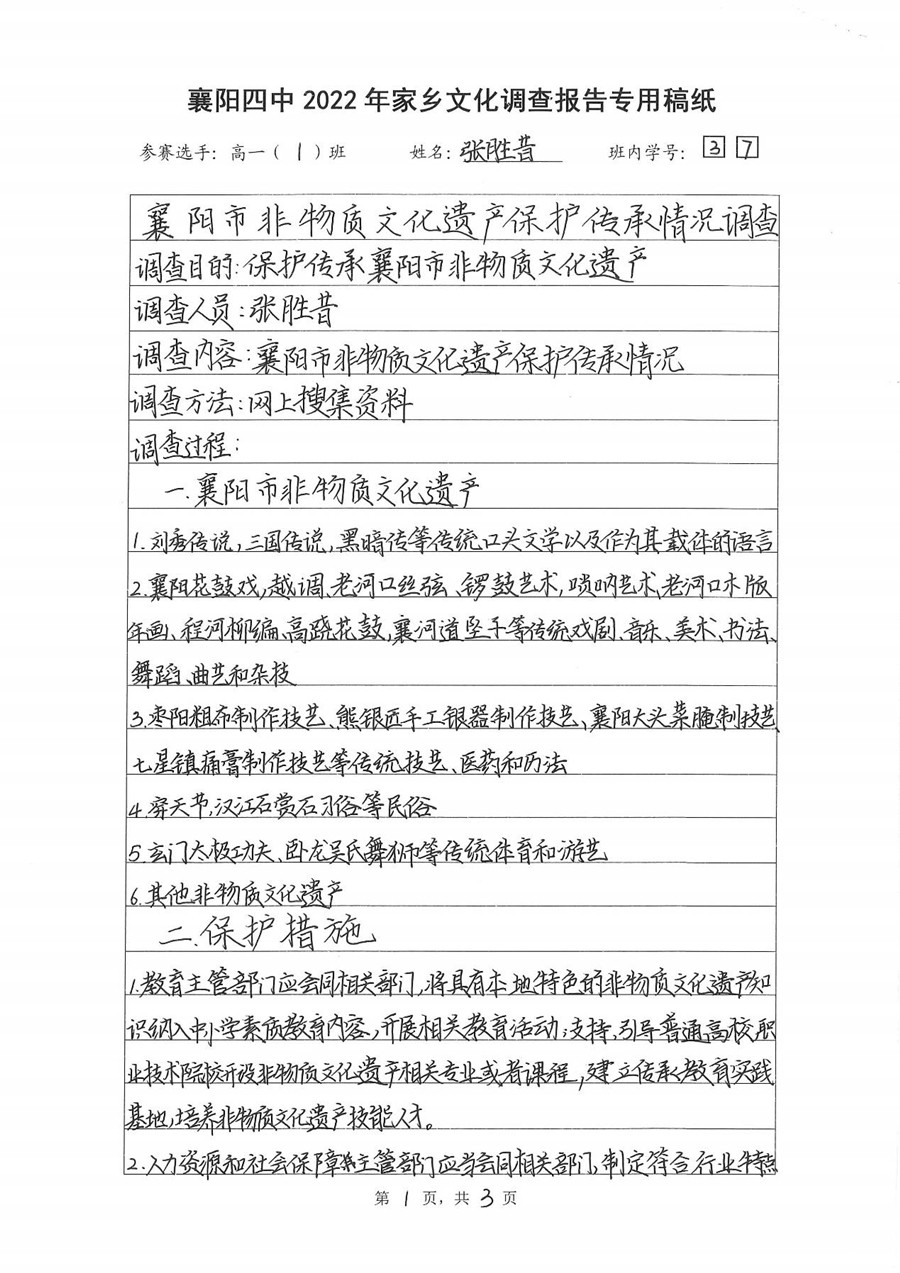 襄阳四中 2022 年家乡文化调查报告专用稿纸
参赛选手：高一（ 1 ）班 姓名：张胜昔 班内学号：3 7
襄阳市非物质文化遗产保护传承情况调查
调查目的：保护传承襄阳市非物质文化遗产
调查人员：张胜昔
调查内容：襄阳市非物质文化遗产保护传承情况
调查方法：网上搜集资料
调查过程：
一.襄阳市非物质文化遗产
1.刘秀传说，三国传说，黑暗传等传统口头文学以及作为其载体的语言
2.襄阳花鼓戏，越调、老河口丝弦、锣鼓艺术，唢呐艺术、老河口木版
年画、程河柳编、高跷花鼓，襄河道坠子等传统戏剧、音乐、美术、书法、
舞蹈、曲艺和杂技
3.枣阳粗布制作技艺、熊银匠手工银器制作技艺、襄阳大头菜腌制技艺
七星镇痛膏制作技艺等传统技艺、医药和历法
4.穿天节，汉江石赏石习俗等民俗
5.玄门太极功夫、卧龙吴氏舞狮等传统体育和游艺
6.其他非物质文化遗产
二.保护措施
1.教育主管部门应会同相关部门，将具有本地特色的非物质文化遗产知
识纳入中小学素质教育内容，开展相关教育活动；支持，引导普通高校、职
业技术院校开设非物质文化遗产相关专业或者课程，建立传承教育实践
基地，培养非物质文化遗产技能人才。
2.人力资源和社会保障主管部门应当会同相关部门，制定符合行业特点
第 1 页，共 3 页